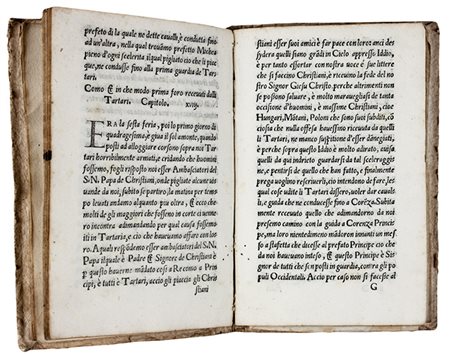 prefeto di la quale ne dette caualli, e condutta finc
ad un'altra, nella qual trouāmo prefetto Michea
pieno d'ogni scelerita il qual pigliato cio che li piac
que, ne condusse fino alla prima guardia de Tar
tari.
Como & in che modo prima foro receuuti dalli
Tartari. Capitolo. xviij.
ERa la sesta feria, poi lo primo giorno di
quadragesima, e giua il sol amonte, quando
posti ad alloggiare corsono sopra noi Tar
tari horribilmente armati, e cridando che huomini
fossemo, fogli risposto noi esser Ambasciatori del
S.N. Papa de Christiani, onde pigliate alcune
viuande da noi, subito se partiro la matina per tem
po leuati andemo alquanto piu oltra, & ecco che
molti de gli maggiori che fossero in corte ci venne
ro incontro adimandando per qual causa fossemo
iti in Tartaria, e cio che haueuamo affare con los
ro. A quali respōdemo esser ambasciatori del S.N.
Papa il quale è Padre & Signore de Christiani & ꝑ
questo hauerne mādato cosi a Recomo a Prin
cipi, e tutti e Tartari, acciò gli piaccia gli Chris
stiani
stiani esser suoi amici è far pace con loro: anci des
sydera quelli siano grādi in Cielo appresso Iddio,
è per tanto essortar con nostra uoce è sue lettere
che si faccino Christiani, è receuino la fede del no
stro Signor Giesu Christo perche altrimenti non
se possono saluare, è molto marauegliasi de tanta
occisione d'huomini, è massime Christiani, cioe
Hungari, Mōtani, Poloni che sono suoi subditi, cō
ciosia che nulla offesa hauessino receuuta da quelli
li Tartari, ne manco suspitione d'esser dānegiati,
è perche sopra questo Iddio è molto adirato, esuia
quelli da qui indrieto guardarsi da tal sceleraggis
ne, è pentirsi di quello che han fatto, e finalmente
prega uoglino resriuerli, cio intendono de fare, les
qual cose udite li Tartari dissero, uoler dar cauals
li, e guida che ne conducesse fino a Corēza. Subita
mente receuuto quello che adimandorno da noi
presemo camino con la guida a Corenza Princis
pe, ma loro nientedimeno mādoron innanti un mes
so a staffetta che dicesse al prefato Principe cio che
da noi haueuamo inteso, & questo Principe è Sis
gnor de tutti che sn posti in guardia, contra gli po
puli Occidentali. Accio per caso non se facesse al
G